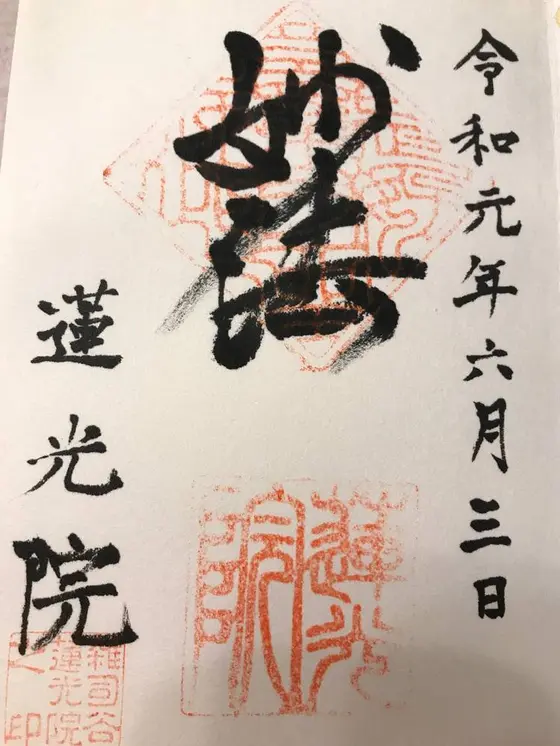 令和元年六月三日
妙法
蓮光院
蓮光院
雑司谷
蓮光院
之印